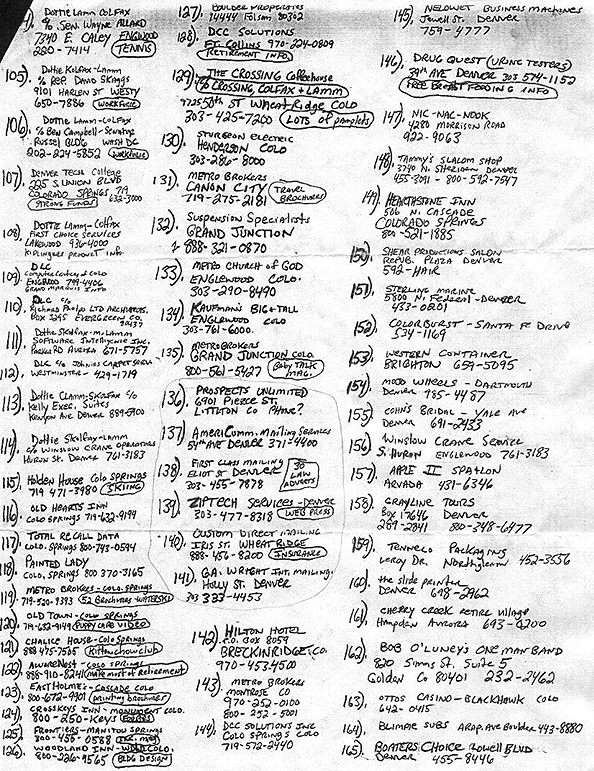 Dottie Lamm Colfax
% Sen. Wayne Allard
7340 E. Caley Englwood
220-7414 Tennis
105). Dottie Kolfax-Lamm
% Rep. David Skaggs
9101 Harlan St Westy
650-7886 Workfile
106) Dottie Lamm-Colfax
% Ben Campbell-Senator
Russel Bldg Wash DC
202-224-5852 Workfile
107) Denver Tech College
225 S. Union Blvd
Colorado Springs 719
Strong Funds 632-3000
108) Dottie Lamm-Colfax
First Choice Services
Lakewood 936-4000
Kiplingers Product Info.
109) DLC
Computer Century of Colo
Englwood 799-4406
Grand Marquis Info
110) DLC %
Richard Phelps LTD Architects.
Box 3295 Evergreen Co.
80437
111) Dottie Skolfax-McLamm
Software Intelligence Inc.
Parker Rd Aurora 671-5757
112) DLC % Johnies Carpet Serv.
Westminster - 429-1719
113) Dottie Lamm-Skolfax %
Kelly Exec. Suites
Kenyon Ave Denver 889-5900
114) Dottie Skolfax-Lamm
% Winslow Crane Operators
Huron St. Denver 761-3183
115) Holden House Colo Springs
719 471-3980 Skiing
116) Old Hearts Inn
Colo Springs 719-632-9194
117) Total Recall Data
Colo. Springs 800-743-0594
118) Painted Lady
Colo. Springs 800 370-3165
119) Metro Brokers - Colo. Springs
719-520-9393 52 Brochures-Waterski
120) Old Town - Colo Springs
719-632-9194 Puppy Care Video
121) Chalice House - Colo Springs
888 475-7505 Kitten Chow Club
122) AwareNest - Colo Springs
888-910-8241 Make Most of Retirement
123) Eastholme - Cascade Colo
800-672-9901 Printing Brochures
124) Crosskeys Inn - Monument Colo.
800-250-Keys
125) Frontiers-Manitou Springs
800-450-0588
126) Woodland Inn - Wdld. Colo.
800-226-9565 Bldg Design
127) Boulder Properties
14444 Folsom 80302
128) DCC Solutions
Ft. Collins 970-224-0809
Retirement Info.
129) The Crossing Coffeehouse
% Crossing, Colfax + Lamm
Wheat Ridge Colo
303-425-7200 Lots of pamplets
130) Sturgeon Electric
Henderson Colo
303-286-8000
131) Metro Brokers
Canon City
719-275-2181 Travel Brochure
132) Suspension Specialists
Grand Junction
888-321-0870
133) Metro Church of God
Englewood Colo.
303-290-8490
134) Kaufman's Big & Tall
Englewood Colo
303-761-6000
135) Metro Brokers
Grand Junction Colo.
800-561-5427 Baby Talk Mag.
136) Prospects Unlimited
6901 Pierce St.
Littlton Co Phone?
137) AmeriComm. Mailing Services
54th Ave Denver 371-4400
138) First Class Mailing
Eliot St Denver
303-455-7878 30 Law Adverts
139) Ziptech Services - Denver
303-477-8318 Web Press
140) Custom Direct Mailing
Iris St. Wheatridge
888-456-8200 Insurance
141) G.A. Wright Int. Mailing.
Holly St. Denver
303 333-4453
142) Hilton Hotel
P.O. Box 8059
Breckinridge Co.
970-453-4500
143) Metro Brokers
Montrose Co
970-252-0100
800-252-5001
144) DCC Solutions Inc
Colo Springs Colo
719-572-2440
145) Nelowet Business Machines
Jewell St. Denver
759-4777
146) Drug Quest (Urine Testers)
39th Ave Denver 303 574-1152
Free Breast Feeding Info
147) Nic-Nac-Nook
4280 Morrison Road
922-9063
148) Tammy's Slalom Shop
3740 N. Sheridan Denver
455-3091 - 800-592-7547
149) Hearthstone Inn
506 N. Cascade
Colorado Springs
800-521-1885
150) Shear Productions Salon
Repub. Plaza Denver
592-Hair
151) Sterling Marine
5800 N. Federal - Denver
433-0201
152) Colorburst - Santa Fe Drive
534-1169
153) Western Container
Brighton 659-5095
154) Mojo Wheels - Dartmouth
Denver 985-4487
155) Cohn's Bridal - Yale Ave
Denver 691-2433
156) Winslow Crane Service
S. Huron Englewood 761-3183
157) Apple II Spa+lon
Arvada 431-6346
158) Grayline Tours
Box 17646 Denver
289-2841 800-348-6477
159) Tenneco Packaging
Leroy Dr. Northglenn 452-3556
160) the slide printer
Denver 698-2962
161) Cherry Creek Retire Village
Hampden Aurora 693-0200
162) Bob O'Luney's One Man Band
820 Simms St. Suite 5
Golden Co 80401 232-2462
163) Ottos Casino - Blackhawk Colo
642-0415
164) Blimpie Subs Arap. Ave Boulder 443-8880
165) Boaters Choice Lowell Blvd
Denver 455-8446